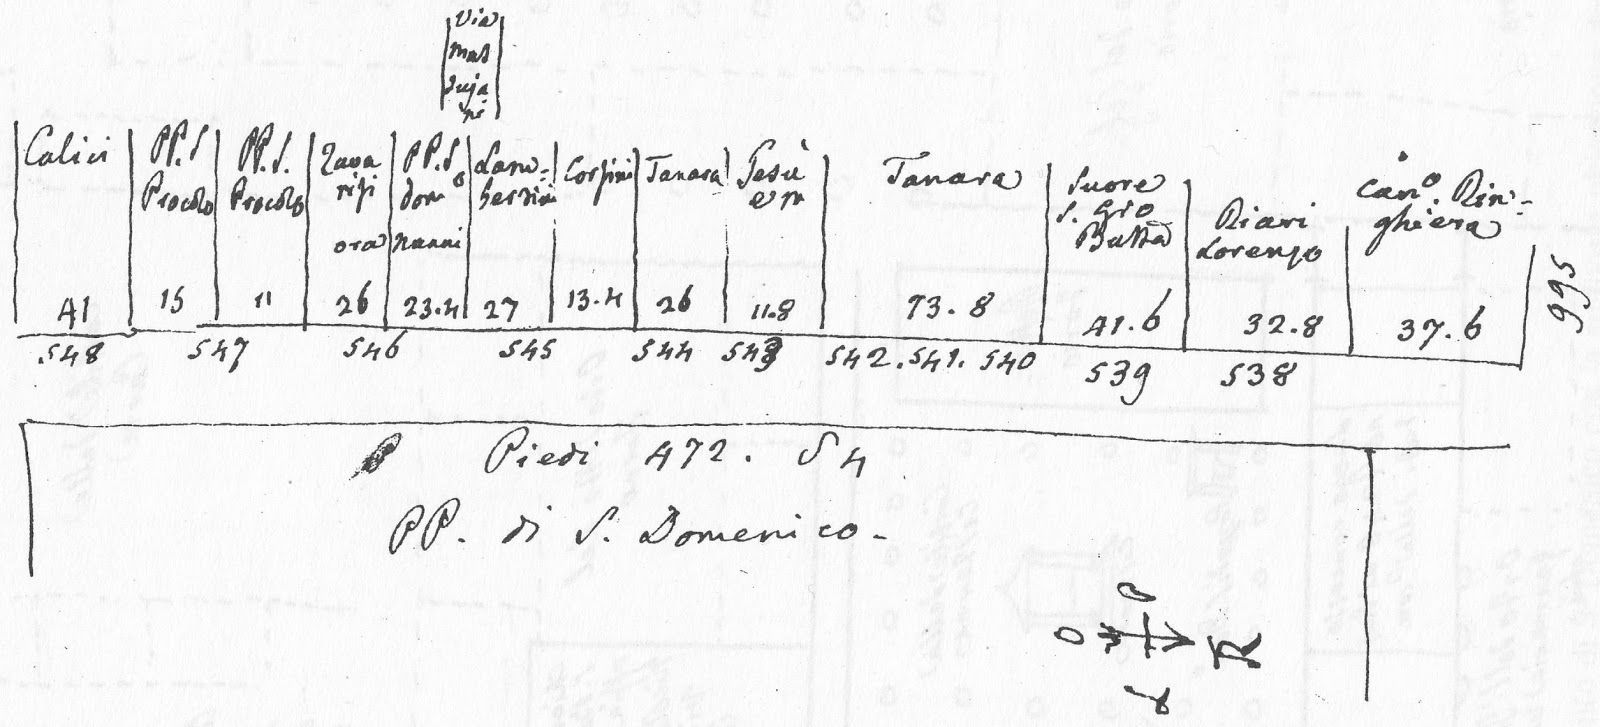 via
Calici
PP. S
Procolo
PP. S.
Procolo
Zava
ora
PP. S
Dom°
nanni
Lam-
bertini
Corsini
Tanara
Gesù
em
Tanara
Suore
S. Gio
Batta
Riari
Lorenzo
Can°. Rin-
ghiera
41
15
11
26
23.4
27
13.4
26
11.8
73. 8
41. 6
32. 8
37. 6
995
548
547
546
545
544
543
542. 541. 540
539
538
Piedi 472. S 4
PP. di S. Domenico.
O
R